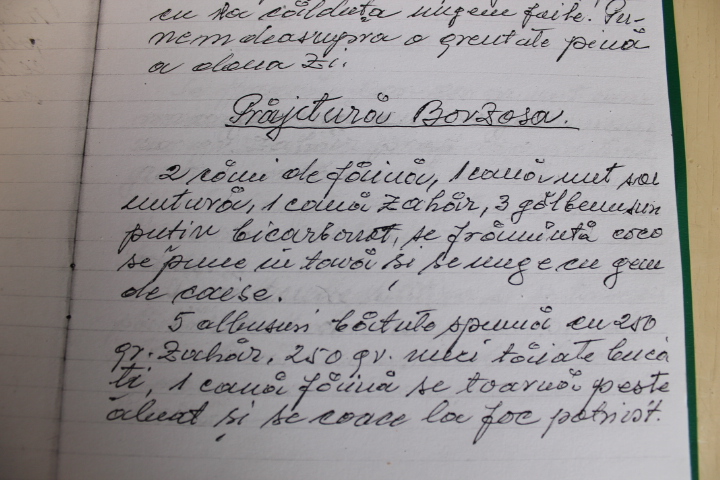 cu să călduța ungem foile. Pu-
nem deasupra o greutate pînă
a doua zi.
Prăjitură Borzosa.
2 căni de făină, 1 cană unt sau
untură, 1 cană zahăr, 3 gălbenusuri
putin bicarbonat, se frămîntă coca
se pune în tavă si se unge cu gem
de caise.
5 albusuri bătute spumă cu 250
gr. zahăr, 250 gr. nuci tăiate bucă
ti, 1 cană făină se toarnă peste
áluat și se coace la foc potrivit.